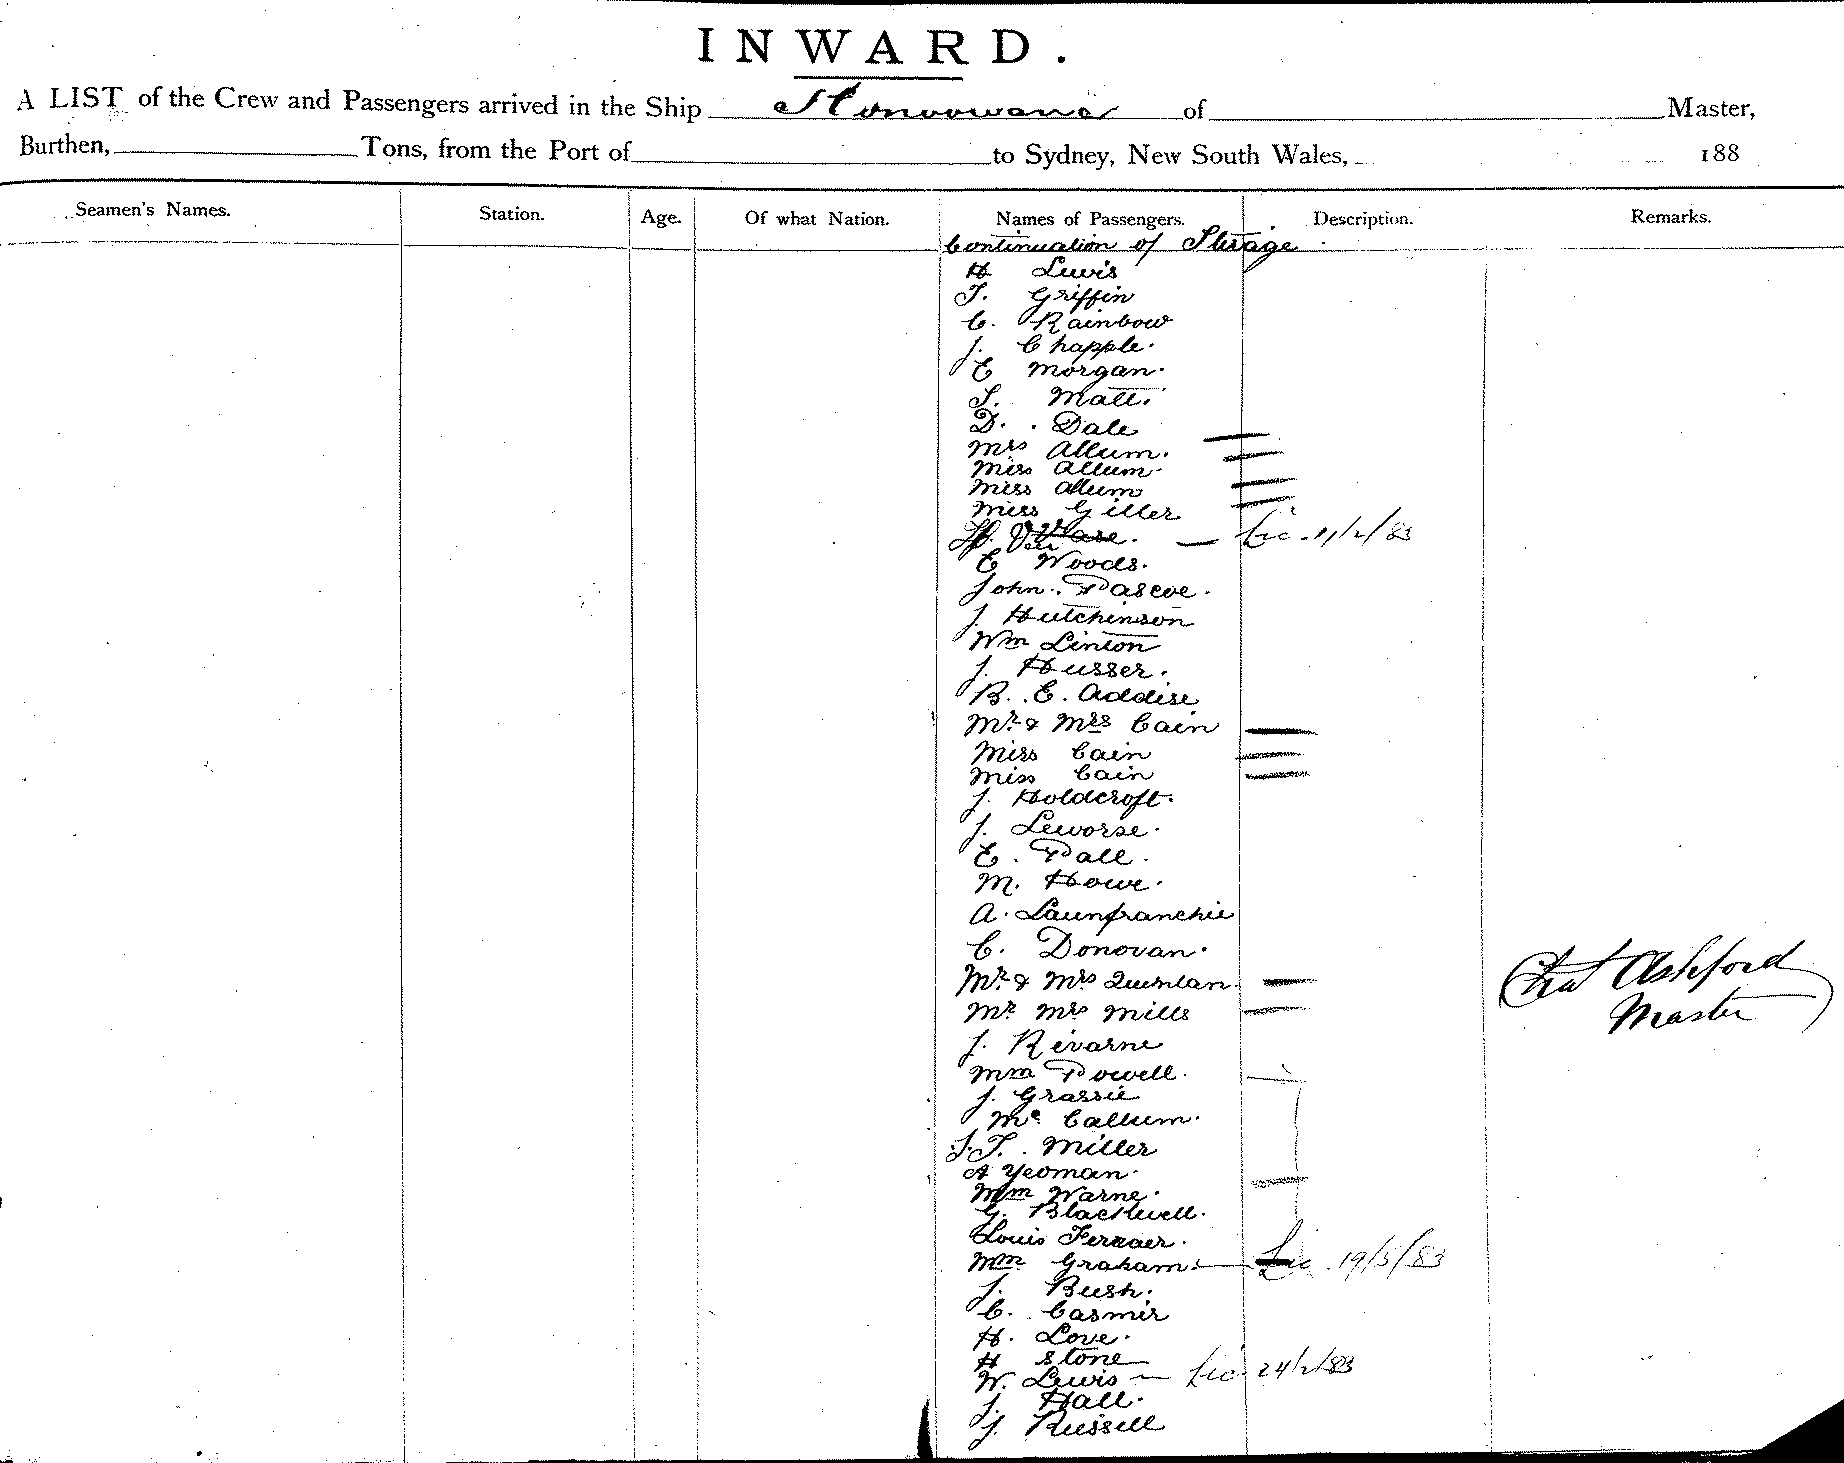 INWARD.
A LIST of the Crew and Passengers arrived in the Ship Honoowana of Master,
Burthen, Tons, from the Port of to Sydney, New South Wales, 188
Seamen's Names. Station. Age. Of what Nation. Names of Passengers. Description. Remarks.
Continuation of Sterage
H Lewis
T. Griffin
C. Rainbow
J. Chapple.
E Morgan.
S. Matt.
D. Dale
Mrs Allum.
Miss Allum.
Miss Allum
Miss Giller
H. — Lic. 11/2/83
E Woods.
John. Pascoe.
J. Hutchinson
Wm Linton
J. Husser.
B. E. Addise
Mr. & Mrs Cain
Miss Cain
Miss Cain
J. Holdcroft.
J. Leworse.
E. Pall.
M. Howe.
A. Launfranchie
C. Donovan.
Mr. & Mrs Quinlan.
Chas Ashford
Master
Mr. Mrs Mills
J. Rivarne
Wm Powell.
J. Grassie
Mc Callum.
S. T. Miller
A Yeoman.
Wm Warne.
G. Blackwell.
Louis Ferraer.
Wm Graham. — Lic. 19/5/83
J. Bush.
C. Casmir
H. Love.
H Stone
W. Lewis — Lic. 24/2/83
J. Hall.
J. Russell